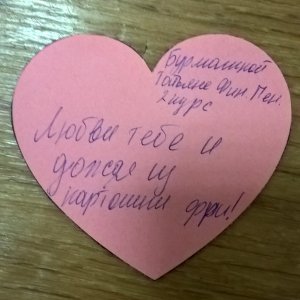 Бурмакиной
Татьяне Фин Мен.
2 курс
Любви тебе и
дождя из
картошки фри!